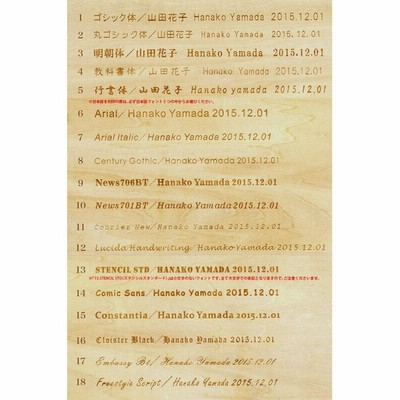 1 ゴシック体/山田花子 Hanako Yamada 2015.12.01
2 丸ゴシック体/山田花子 Hanako Yamada 2015.12.01
3 明朝体/山田花子 Hanako Yamada 2015.12.01
4 教科書体/山田花子 Hanako Yamada 2015.12.01
5 行書体/山田花子 Hanako yamada 2015.12.01
※日本語を刻印の際は、必ず日本語フォント5つの中からお選びください。
6 Arial/Hanako Yamada 2015.12.01
7 Arial Italic/Hanako Yamada 2015.12.01
8 Century Gothic/Hanako Yamada 2015.12.01
9 News706BT/Hanako Yamada 2015.12.01
10 News701BT/Hanako Yamada 2015.12.01
11 Courier New/Hanako Yamada 2015.12.01
12 Lucida Handwriting/Hanako Yamada 2015.12.01
13 STENCIL STD/HANAKO YAMADA 2015.12.01
14 Comic Sans/Hanako Yamada 2015.12.01
15 Constantia/Hanako Yamada 2015.12.01
16 Cloister Black/Hanako Yamada 2015.12.01
17 Embassy Bt/Hanako Yamada 2015.12.01
18 Freestyle Script/Hanako Yamada 2015.12.01